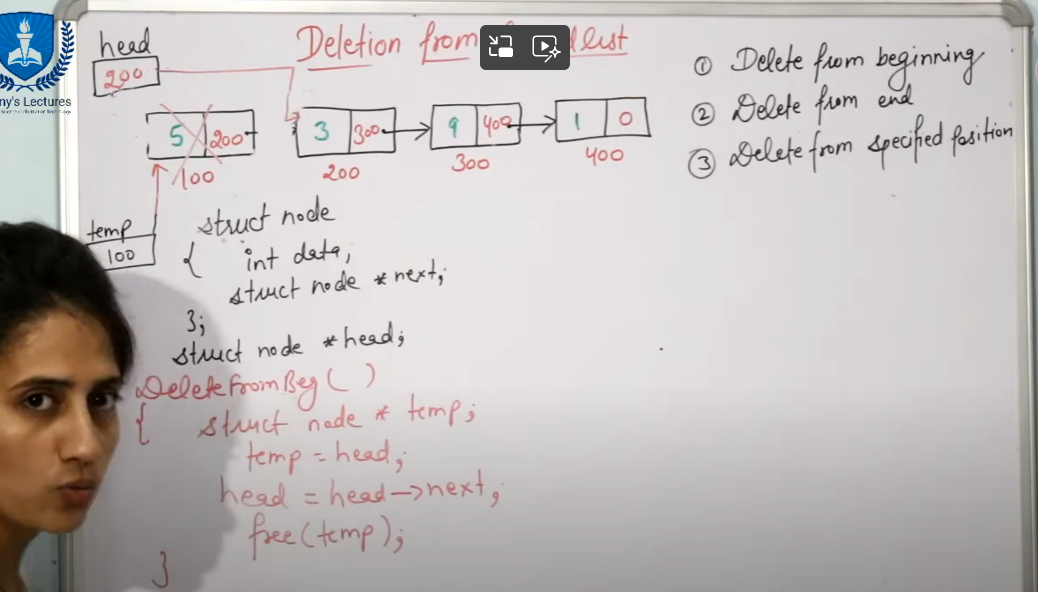 head
200
Deletion from list
ny's Lectures
5 200
100
3 300
200
9 400
300
1 0
400
① Delete from beginning
② Delete from end
③ Delete from specified position
temp
100
struct node
{ int data;
struct node *next;
};
struct node *head;
DeletefromBeg( )
{ struct node * temp;
temp = head;
head = head->next;
free(temp);
}